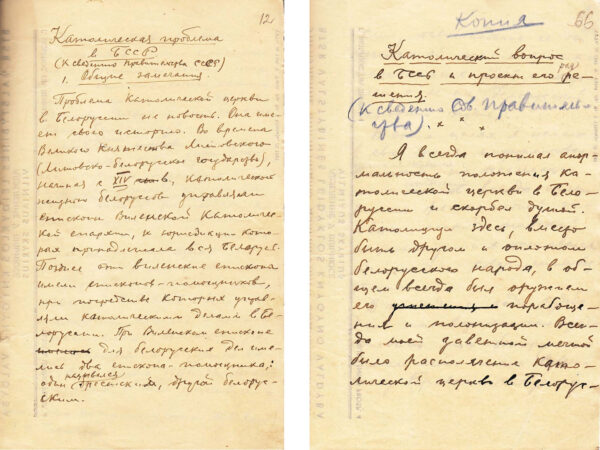 12
Католическая проблема
в БССР
(К сведению правительства СССР)
1. Общие замечания.
Проблема Католической церкви
в Белоруссии не новость. Она име-
ет свою историю. Во времена
Великого Княжества Литовского
(Литовско-белорусское государство),
начиная с XIV в., католической
жизнью белорусов управляли
епископы Виленской Католичес-
кой епархии, к юрисдикции кото-
рых принадлежала вся Беларусь.
Позднее эти виленские епископы
имели епископов-помощников,
при посредстве которых управ-
ляли католическими делами в Бе-
лоруссии. При Виленском епископе
для белорусских дел име-
лись два епископа-помощника;
один назывался Брестским, другой белорус-
ским.
Копия
66
Католический вопрос
в БССР и проект его раз
решения.
(К сведению Сов. Правительс-
тва).
× × ×
Я всегда понимал анор-
мальность положения ка-
толической церкви в Бело-
руссии и скорбел душой.
Католицизм здесь, вместо
быть другом и оплотом
белорусского народа, в об-
щем всегда был оружием
его порабоще-
ния и полонизации. Всег-
да моей давнейшей мечтой
было располячение като-
лической церкви в Белорус-